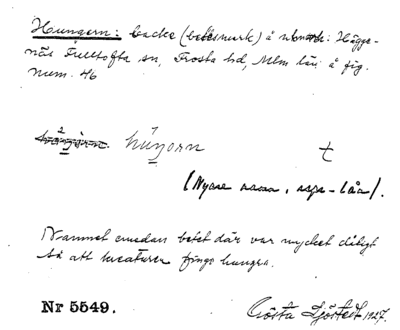 Hungern: backe (betesmark) å utmark: Hägge-
näs Fulltofta sn, Frosta hd, Mlm län å fig.
num. 46
hūŋorn t
(Nyare namn,
Namnet emedan betet där var mycket dåligt
så att kreaturen fingo hungra.
Nr 5549. Gösta Sjöstedt 1927.